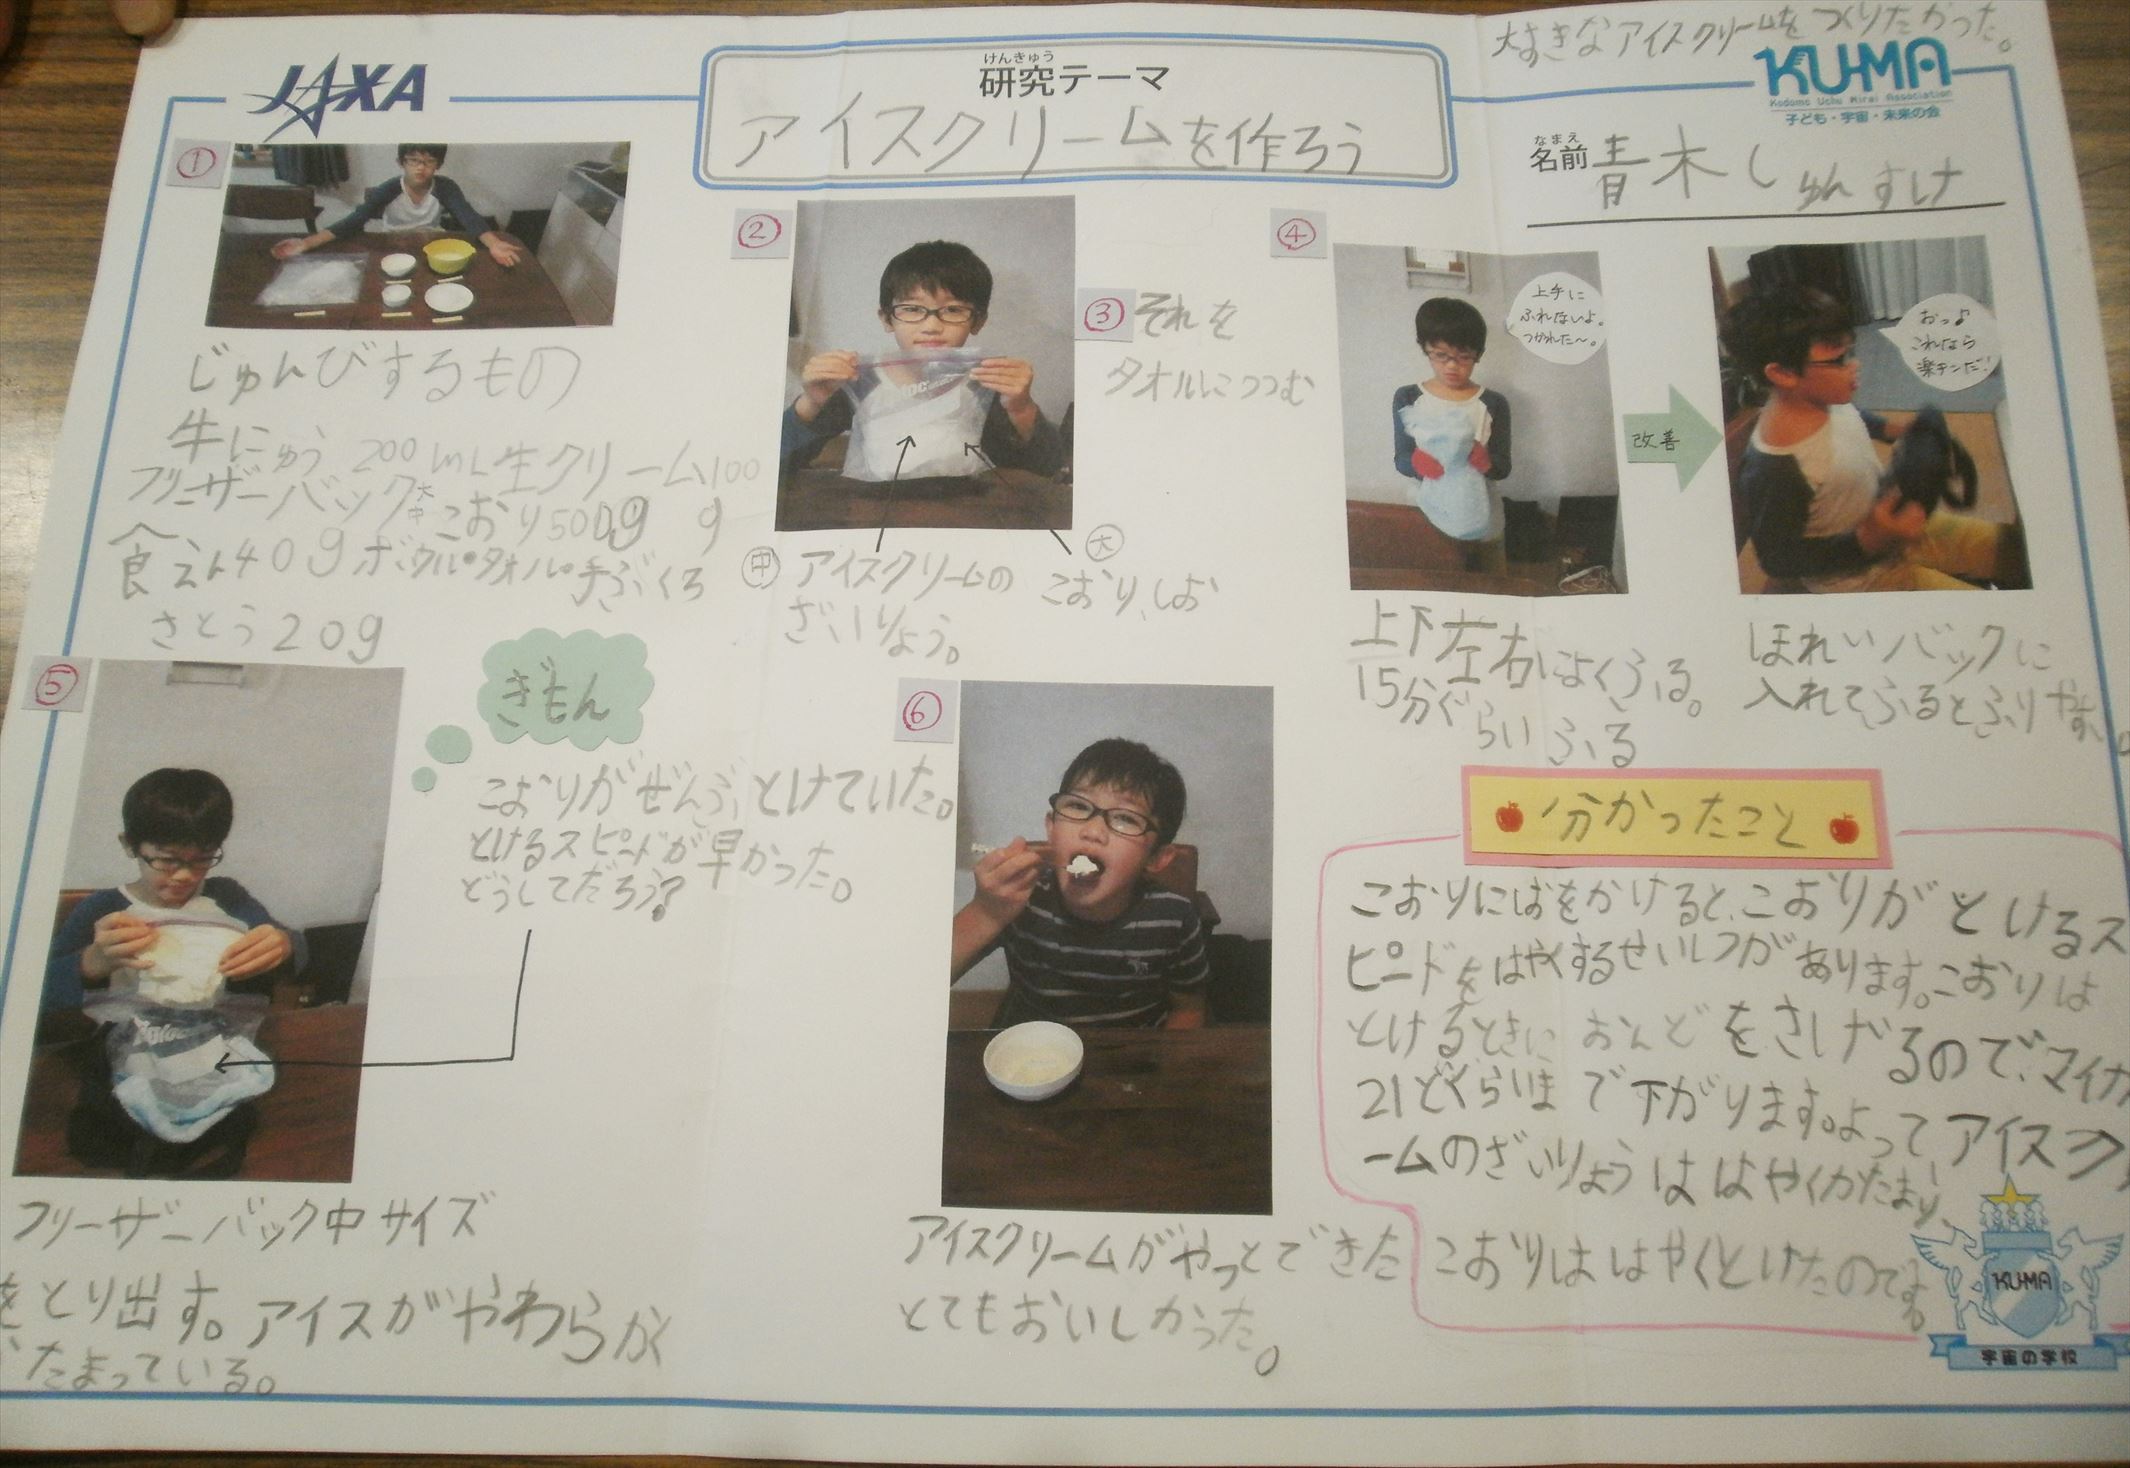 大すきなアイスクリームをつくりたかった。
JAXA
けんきゅう
研究テーマ
アイスクリームを作ろう
KU-MA
Kodomo Uchu Mirai Association
子ども・宇宙・未来の会
なまえ
名前 青木しゅんすけ
①
じゅんびするもの
牛にゅう 200mL 生クリーム100g
フリーザーバック大中 こおり500g
食えん40g ボウル・タオル・手ぶくろ
さとう20g
②
中 アイスクリームの
ざいりょう。
大
こおり、しお
③ それを
タオルにつつむ
④
上手に
ふれないよ。
つかれた〜。
改善
おっ♪
これなら
楽チンだ!
上下左右によくふる。
15分ぐらいふる
ほれいバックに
入れてふるとふりやすい。
⑤
ぎもん
こおりがぜんぶとけていた。
とけるスピードが早かった。
どうしてだろう?
フリーザーバック中サイズ
をとり出す。アイスがやわらかく
たまっている。
⑥
アイスクリームがやっとできた
とてもおいしかった。
分かったこと
こおりにしおをかけると、こおりがとけるス
ピードをはやくするせいしつがあります。こおりは
とけるときにおんどをさげるので、マイナ
21どくらいまで下がります。よってアイスク
ームのざいりょうははやくかたまり、
こおりははやくとけたのです。
KU-MA
宇宙の学校